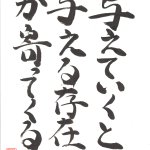 与えていくと
与える存在
が寄ってくる